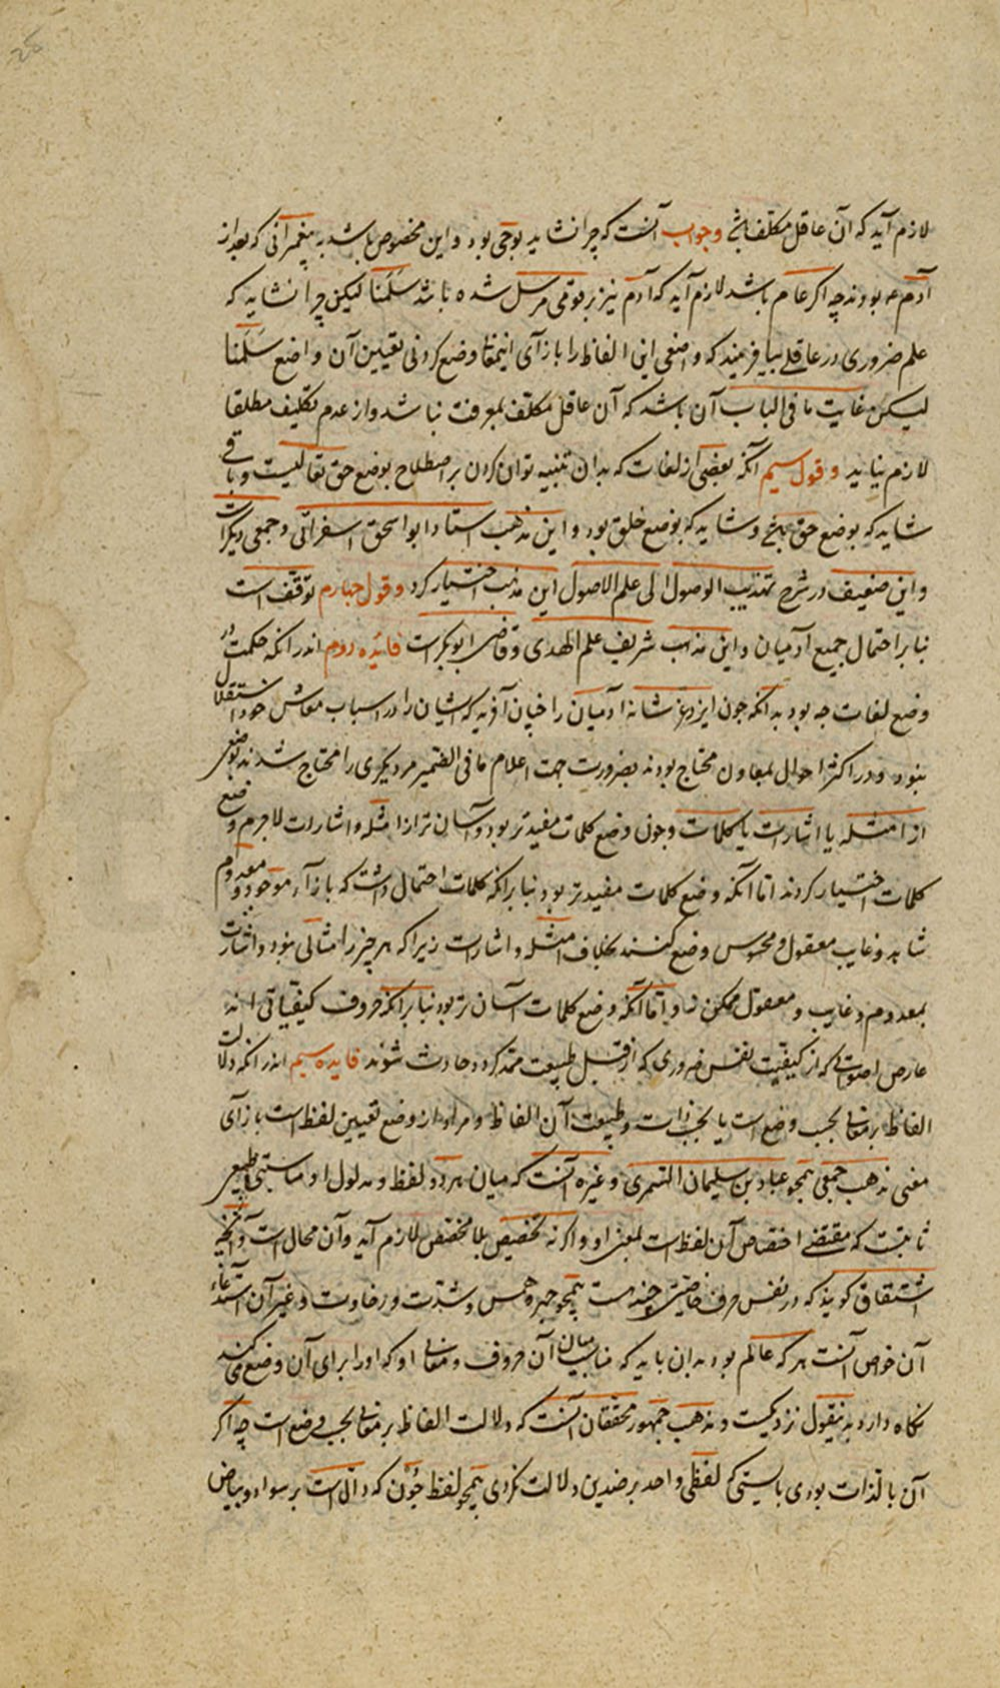 لازم آید که آن عاقل مکلف باشد و جواب آنست که چرا نشاید بوحی بود و این مخصوص باشد به پیغمبرانی که بعد از
آدم عم بودند چه اگر عام باشد لازم آید که آدم نیز بر قومی مرسل شده باشد سَلَّمنا لیکن چرا نشاید که
علم ضروری در عاقلے بیافریند که واضعی این الفاظ را بازآی این معانی وضع کرد و نی تعیین آن واضع سَلَّمنا
لیکن غایت ما فی الباب آن باشد که آن عاقل مکلف بمعرفت نباشد و از عدم تکلیف مطلقا
لازم نیاید و قول سیم آنکه بعضی از لغات که بدان تنبیه توان کردن بر اصطلاح بوضع حق تعالیست و باقی
شاید که بوضع حق باشد و شاید که بوضع خلق بود و این مذهب استاد ابو اسحق اسفرائی و جمعی دیگرست
و این ضعیف در شرح تهذیب الوصول الی علم الاصول این مذهب اختیار کرد و قول چهارم توقف است
بنا بر احتمال جمیع آدمیان و این مذهب شریف علم الهدی و قاضی ابوبکرست فائده دوم اندر آنکه حکمت در
وضع لغات چه بود بدانکه چون ایزد عز شانه آدمیان را چنان آفرید که ایشان را در اسباب معاش خود استقلال
نبود و در اکثر احوال بمعاون محتاج بودند بضرورت جهت اعلام ما فی الضمیر مر دیکری را محتاج شدند بوضعی
از امثله یا اشارات یا کلمات و چون وضع کلمات مفید تر بود و آسان تر از امثله و اشارات لاجرم وضع
کلمات اختیار کردند اما آنکه وضع کلمات مفید تر بود بنا بر آنکه کلمات احتمال داشت که بازآء موجود و معدوم
شاهد و غایب معقول و محسوس وضع کنند بخلاف امثله و اشارت زیرا که هر چیز را مثالی نبود و اشارت
بمعدوم و غایب و معقول ممکن نه و اما آنکه وضع کلمات آسان تر بود بنا بر آنکه حروف کیفیاتی اند
عارض اصوات که از کیفیت نفس ضروری که از قبل طبیعت ممتد کردد حادث شوند فایده سیم اندر آنکه دلالت
الفاظ بر معانی بحسب وضع است یا بحسب ذات و طبیعت آن الفاظ و مراد از وضع تعیین لفظ است بازآی
معنی مذهب جمعی همچو عباد بن سلیمان التیمری و غیره آنست که میان هر دو لفظ و مدلول او مناسبتی طبیعی
ثابتست که مقتضے اختصاص آن لفظ است بمعنی او و اگر نه تخصیص بلا مخصص لازم آید و آن محال است و آنچه
اشتقاق کویند که در نفس حرف خاصیتی چند هست همچو جهر و همس و شدت و رخاوت و غیر آن استدعاء
آن خواص آنست هر که عالم بود بدان باید که مناسب میان آن حروف و معانی او که او را برای آن وضع می کند
نگاه دارد به نیقول نزدیکست و مذهب جمهور محققان آنست که دلالت الفاظ بر معانی بحسب وضع است چه اکر
آن بالذات بودی بایستی که لفظی واحد بر ضدین دلالت نکردی همچو لفظ جُون که دال است بر سواد و بیاض